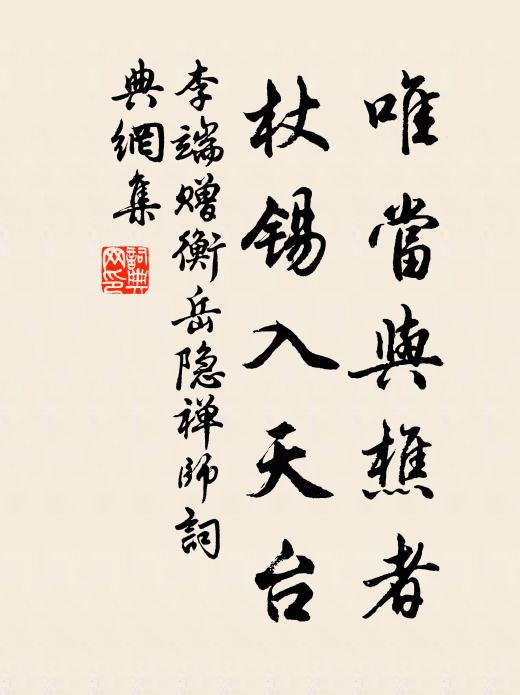 唯當與樵者
杖锡入天台
李端贈衡岳隐禅師詞
典網集
詞典网印